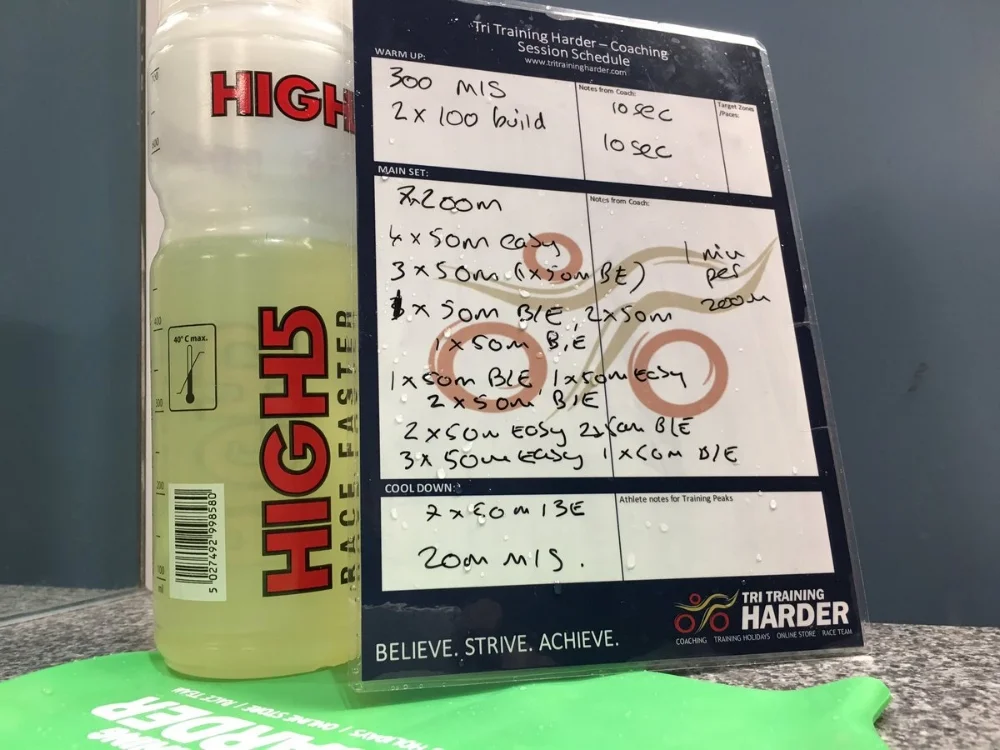 HIGH
HIGH5
RACE FASTER
40°C max.
400
300
200
100
ml
5 027492 998580
Tri Training Harder – Coaching
Session Schedule
www.tritrainingharder.com
WARM UP:
300 M/S
2 x 100 build
Notes from Coach:
10 sec
10 sec
Target Zones
/Paces:
MAIN SET:
200m
4 x 50m easy
3 x 50m (1 x 50m BE)
x 50m B/E, 2 x 50m
1 x 50m B/E
1 x 50m B/E 1 x 50m easy
2 x 50m B/E
2 x 50m Easy 2x 50m B/E
3 x 50m Easy 1 x 50m B/E
Notes from Coach:
1 min
per
200m
COOL DOWN:
2 x 50m BE
200m M/S.
Athlete notes for Training Peaks
BELIEVE. STRIVE. ACHIEVE.
TRI TRAINING
HARDER
COACHING TRAINING HOLIDAYS ONLINE STORE RACE TEAM
HOLIDAYS | ONLINE STORE | RACE TEAM